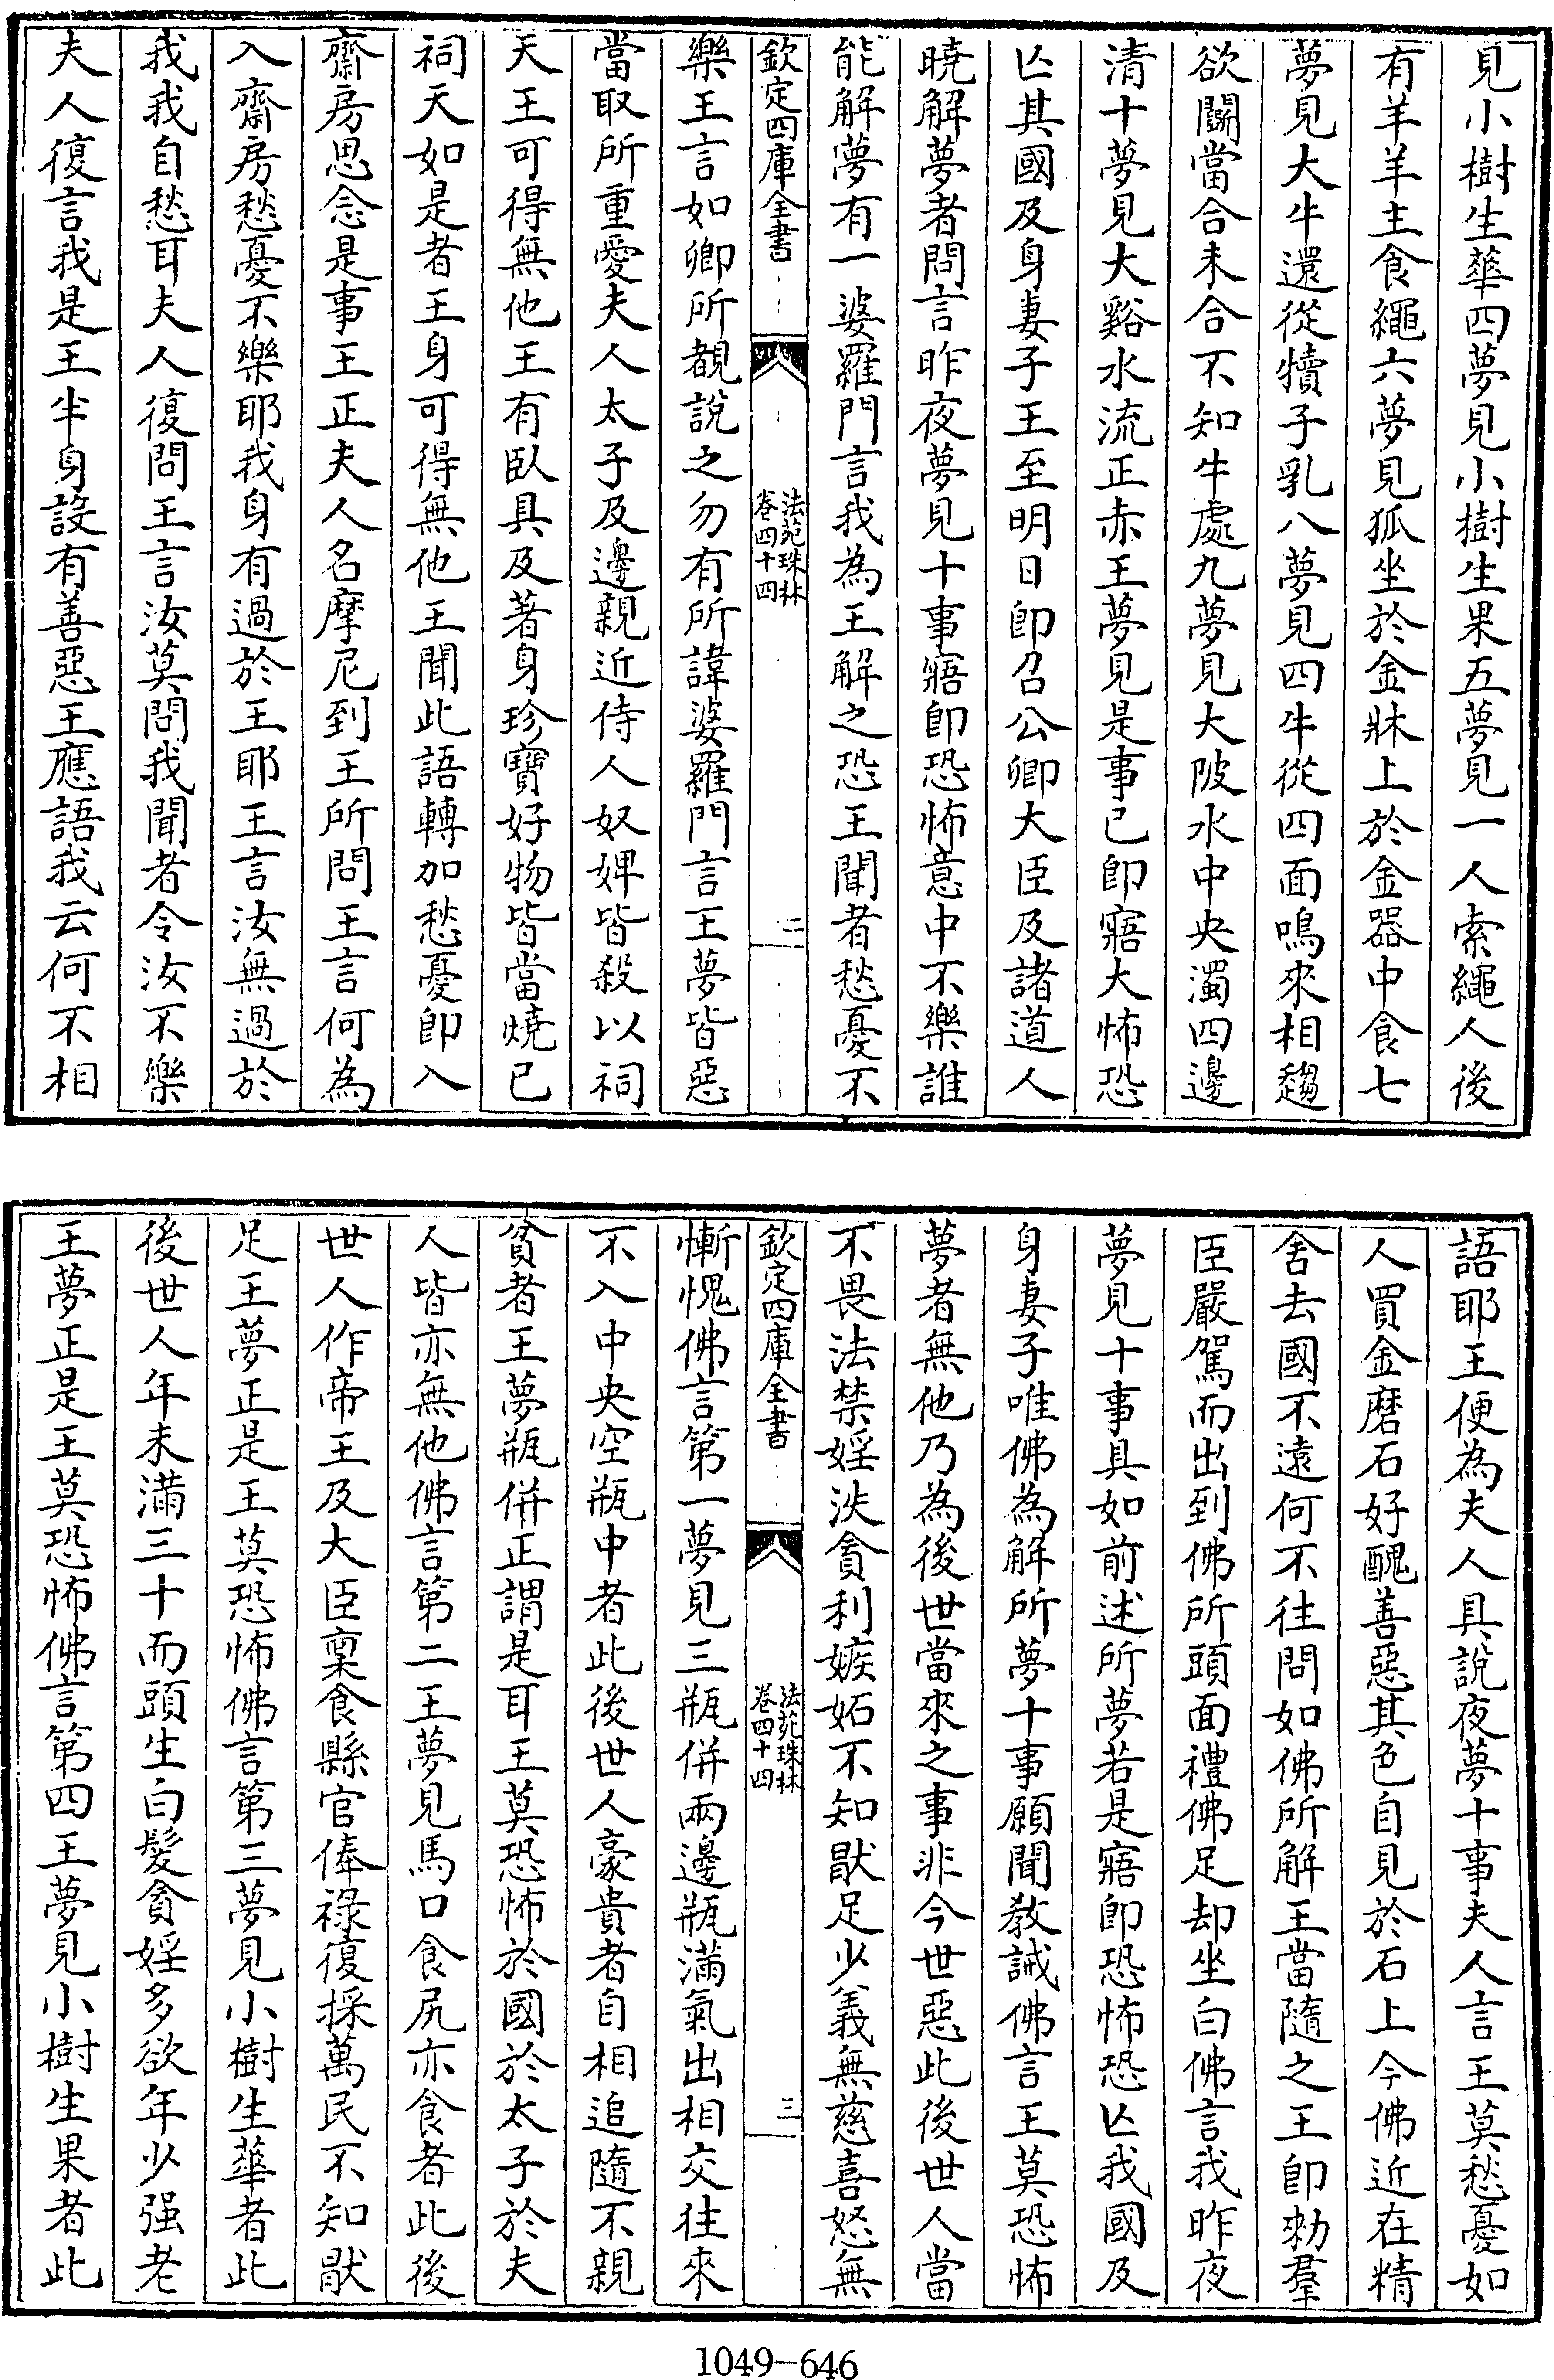 見小樹生華四夢見小樹生果五夢見一人索繩人後
有羊羊主食繩六夢見狐坐於金牀上於金器中食七
夢見大牛還從犢子乳八夢見四牛從四面鳴來相趨
欲鬭當合未合不知牛處九夢見大陂水中央濁四邊
清十夢見大谿水流正赤王夢見是事已即寤大怖恐
亡其國及身妻子王至明日即召公卿大臣及諸道人
曉解夢者問言昨夜夢見十事寤即恐怖意中不樂誰
能解夢有一婆羅門言我為王解之恐王聞者愁憂不
欽定四庫全書
法苑珠林
卷四十四
二
樂王言如卿所覩說之勿有所諱婆羅門言王夢皆惡
當取所重愛夫人太子及邊親近侍人奴婢皆殺以祠
天王可得無他王有臥具及著身珍寶好物皆當燒已
祠天如是者王身可得無他王聞此語轉加愁憂即入
齋房思念是事王正夫人名摩尼到王所問王言何為
入齋房愁憂不樂耶我身有過於王耶王言汝無過於
我我自愁耳夫人復問王言汝莫問我聞者令汝不樂
夫人復言我是王半身設有善惡王應語我云何不相
語耶王便為夫人具說夜夢十事夫人言王莫愁憂如
人買金磨石好醜善惡其色自見於石上今佛近在精
舍去國不遠何不往問如佛所解王當隨之王即勑羣
臣嚴駕而出到佛所頭面禮佛足却坐白佛言我昨夜
夢見十事具如前述所夢若是寤即恐怖恐亡我國及
身妻子唯佛為解所夢十事願聞教誡佛言王莫恐怖
夢者無他乃為後世當來之事非今世惡此後世人當
不畏法禁婬泆貪利嫉妬不知猒足少義無慈喜怒無
欽定四庫全書
法苑珠林
卷四十四
三
慚愧佛言第一夢見三瓶併兩邊瓶滿氣出相交往來
不入中央空瓶中者此後世人豪貴者自相追隨不親
貧者王夢瓶併正謂是耳王莫恐怖於國於太子於夫
人皆亦無他佛言第二王夢見馬口食尻亦食者此後
世人作帝王及大臣稟食縣官俸祿復採萬民不知猒
足王夢正是王莫恐怖佛言第三夢見小樹生華者此
後世人年未滿三十而頭生白髮貪婬多欲年少强老
王夢正是王莫恐怖佛言第四王夢見小樹生果者此
1049-646